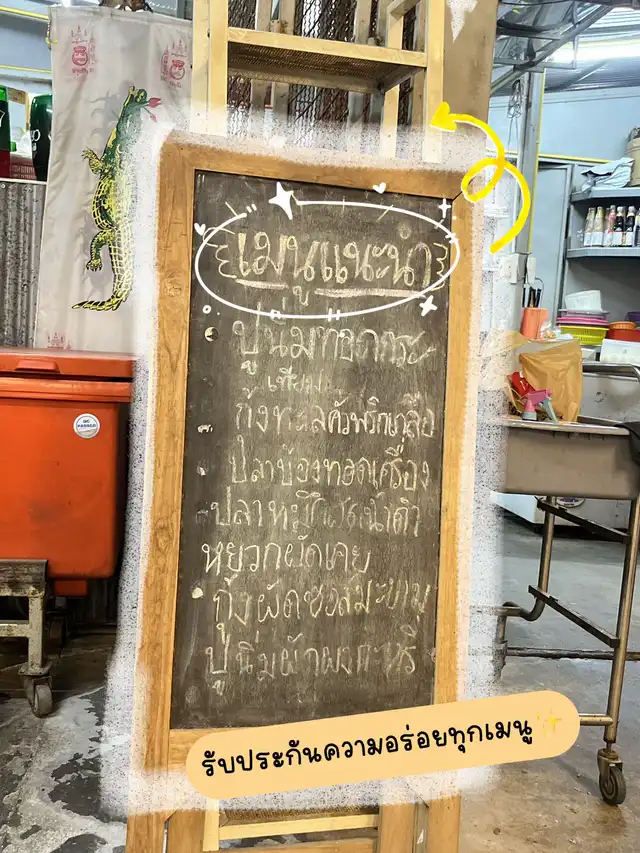 เมนูแนะนำ
ปูนิ่มทอดกระ
เทียม
กุ้งทะลคั่วพริกเกลือ
ปลาบ้องทอดเครื่อง
ปลาหมึกผัดน้ำดำ
หยวกผัดเคย
กุ้งผัดซอสมะขาม
ปูนิ่มผัดผงกะหรี่
รับประกันความอร่อยทุกเมนู